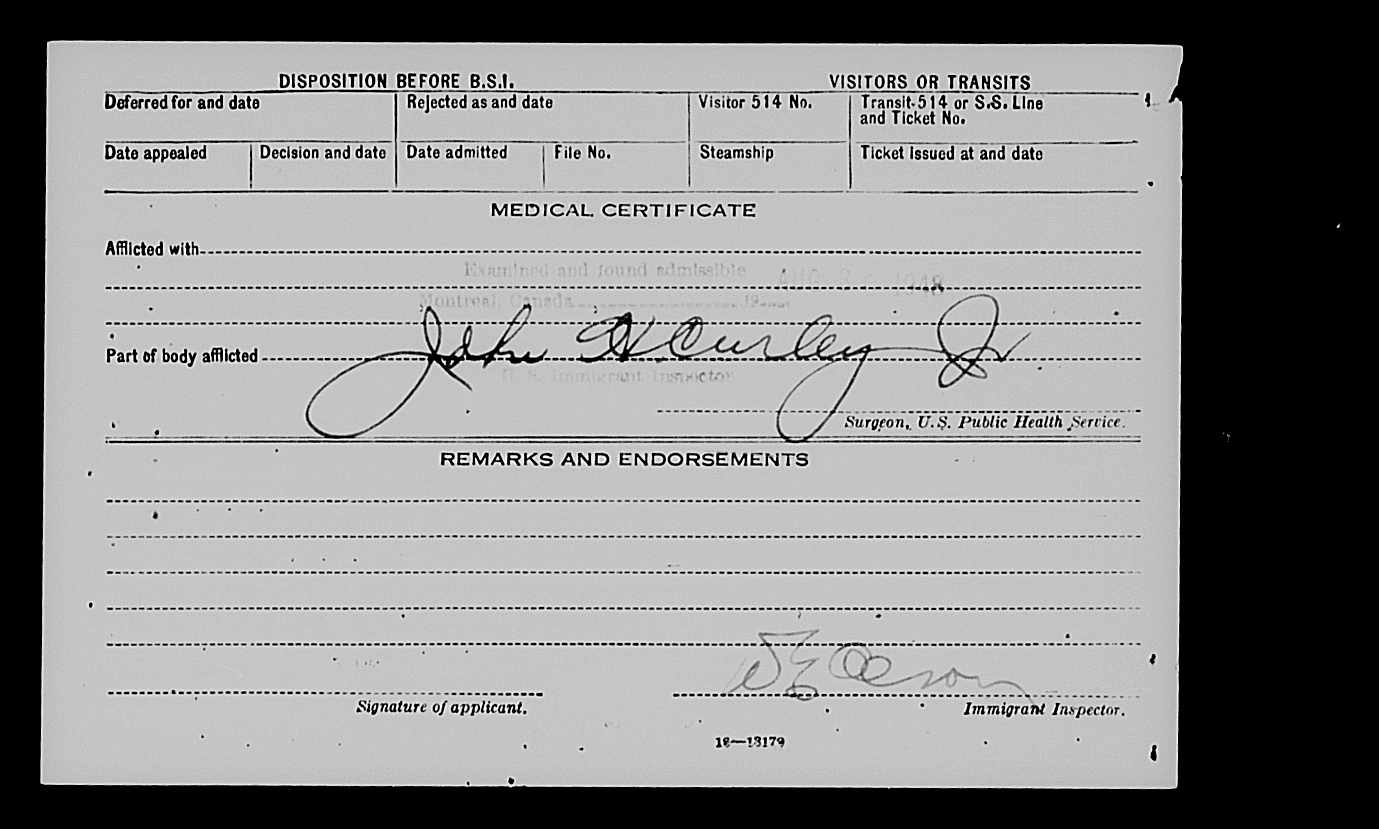 DISPOSITION BEFORE B.S.I. VISITORS OR TRANSITS
Deferred for and date Rejected as and date Visitor 514 No. Transit-514 or S.S. Line and Ticket No.
Date appealed Decision and date Date admitted File No. Steamship Ticket issued at and date
MEDICAL CERTIFICATE
Afflicted with
Examined and found admissible AUG 1948
Montreal, Canada 19
John H Curley Jr
Part of body afflicted
U. S. Immigrant Inspector
Surgeon, U.S. Public Health Service.
REMARKS AND ENDORSEMENTS
Signature of applicant. Immigrant Inspector.
16—13179